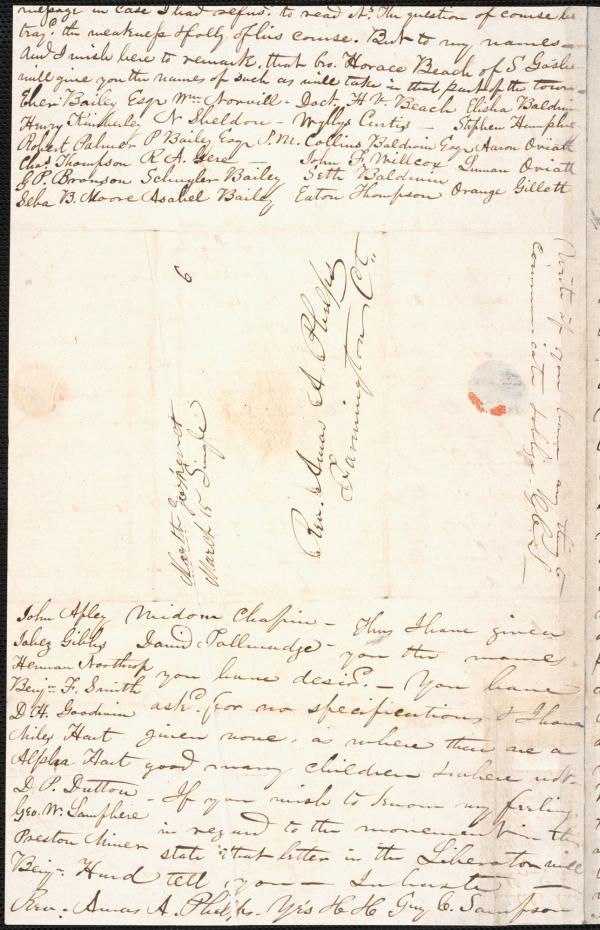 message in case I had refus. to read it. The question of course be
tray. the weakness & folly of his course. But to my names —
And I wish here to remark, that bro. Horace Beach of S Goshen
will give you the names of such as will take in that part of the town.
Eber Bailey Esqr Wm Norvill - Doct. H. V. Beach Elisha Baldwin
Henry Kimberley N Sheldon - Wyllys Curtis — Stephen Humphre
Robert Palmer P Bailey Esqr P.M. Collins Baldwin Esqr Aaron Oviatt
Chas Thompson R A. Gere — John F. Willcox Luman Oviatt
G P. Bronson Schuyler Bailey Seth Baldwin
Seba B. Moore Asahel Bailey Eaton Thompson Orange Gillett
6
North Goshen Ct
March 15 Single
Rev. Amos A. Phelps
Farmington
Ct.
Write if you have any thing to
communicate & oblige. G C S
John Apley Midom Chapin — Thus I have given
Jabez Gibbs David Tallmadge - you the names
Herman Northrop you have desir. — You have
Benjn. F. Smith ask. for no specifications & I have
D. H. Goodwin given none, as where there are a
Miles Hart good many children & where not -
Alpha Hart
D. P. Dutton - If you wish to know my feeling
Geo. W. Lamphere in regard to the movement in the
Preston Miner state that letter in the Liberator will
Benjn. Hurd tell you — In haste —
Rev. Amos A. Phelps. Yrs H H Guy C. Sampson